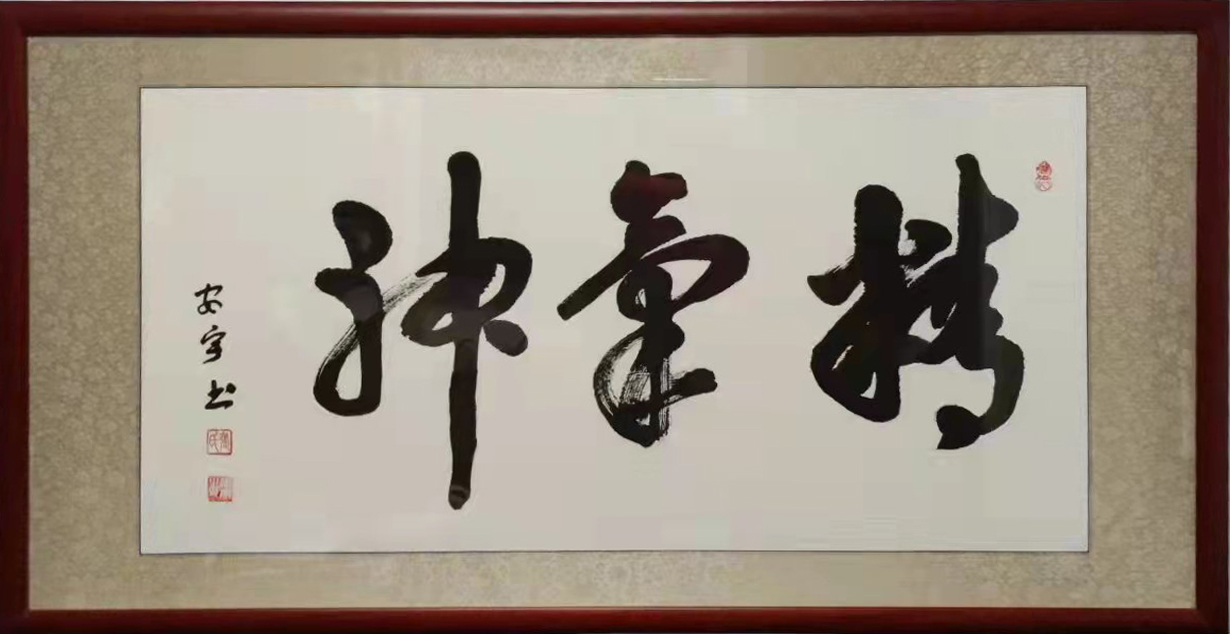 精氣神
安宇书